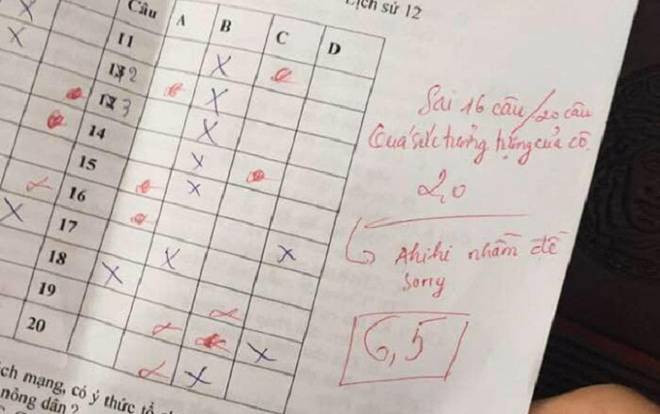 Lịch sử 12
Câu A B C D
11
12
13
14
15
16
17
18
19
20
Sai 16 câu/20 câu
Quá sức tưởng tượng của cô
2,0
Ahihi nhầm đề
Sorry
6,5
ch mạng, có ý thức tổ
nông dân ?